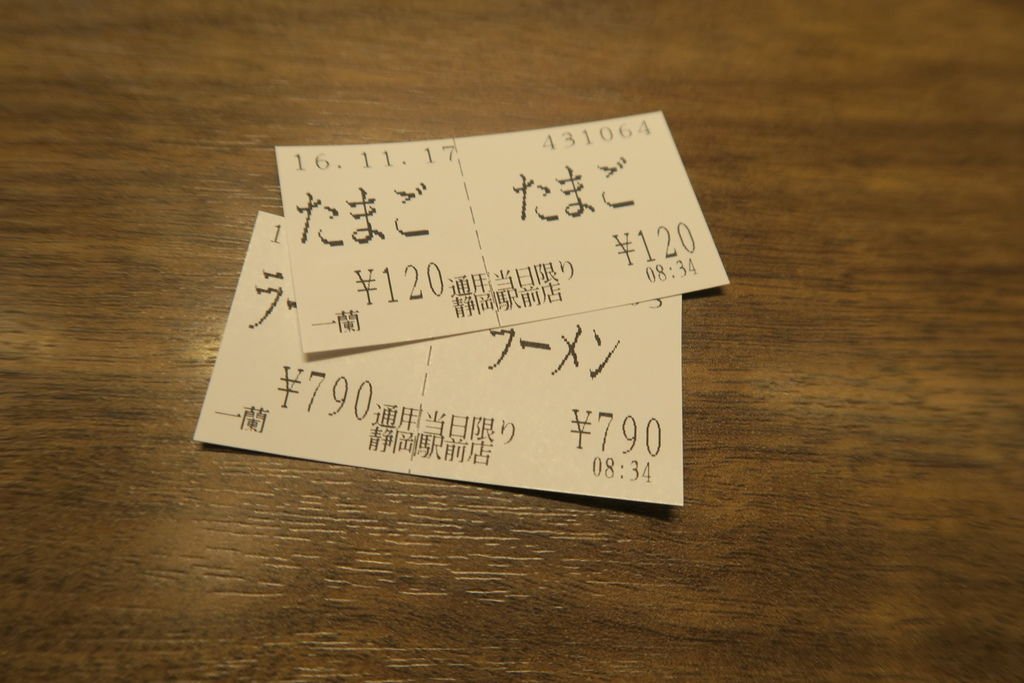 16.11.17 431064
たまご たまご
¥120 ¥120
通用当日限り
08:34
静岡駅前店
一蘭
ラー ラーメン
¥790 ¥790
通用当日限り
一蘭
静岡駅前店
08:34